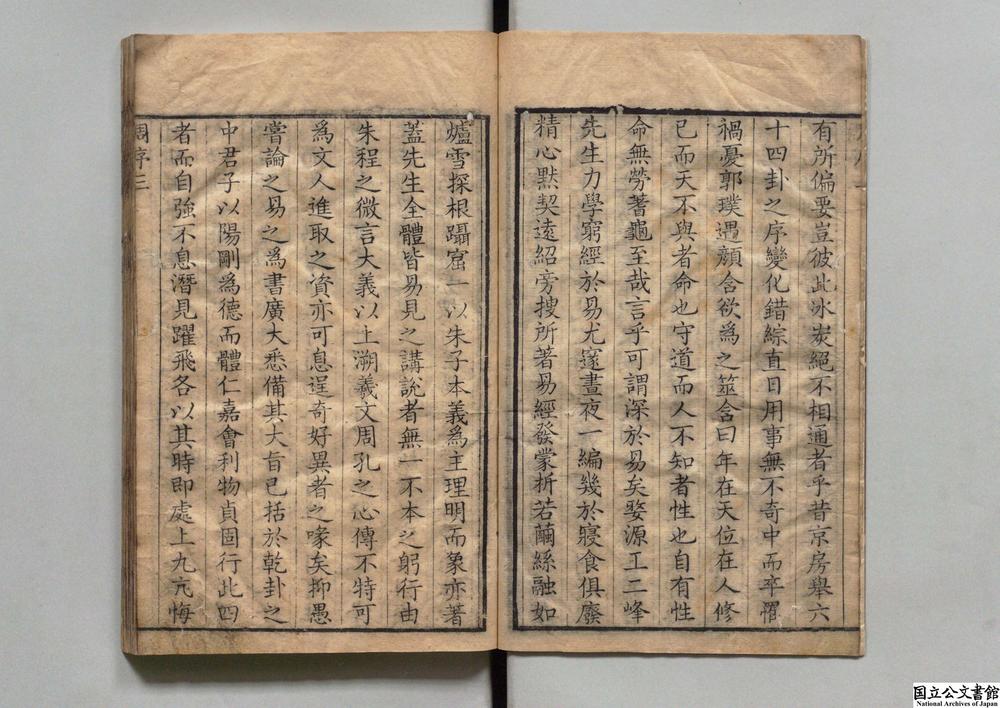 有所偏要豈彼此冰炭絕不相通者乎昔京房舉六
十四卦之序變化錯綜直日用事無不奇中而卒罹
禍憂郭璞遇顏含欲爲之筮含曰年在天位在人修
已而天不與者命也守道而人不知者性也自有性
命無勞蓍龜至哉言乎可謂深於易矣婺源工二峰
先生力學窮經於易尤邃晝夜一編幾於寢食俱廢
精心默契遠紹旁搜所著易經發蒙析若繭絲融如
爐雪探根躡窟一以朱子本義爲主理明而象亦著
蓋先生全體皆易見之講說者無一不本之躬行由
朱程之微言大義以上溯羲文周孔之心傳不特可
爲文人進取之資亦可息逞奇好異者之喙矣抑愚
嘗論之易之爲書廣大悉備其大旨已括於乾卦之
中君子以陽剛爲德而體仁嘉會利物貞固行此四
者而自強不息潛見躍飛各以其時即處上九亢悔
周序三
国立公文書館
National Archives of Japan